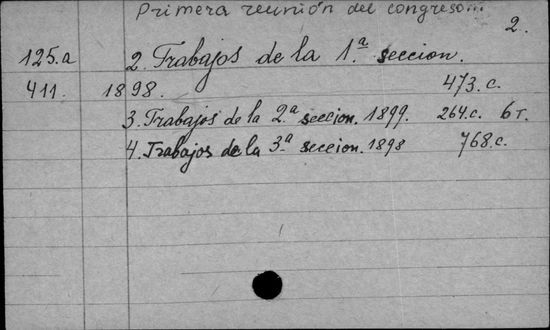 Primera reunión del congreso...
2.
125.a 2. Trabajos de la 1.ª seccion.
411. 1898. 473.c.
3. Trabajos de la 2.ª seccion. 1899. 264.c. 6т.
4. Trabajos de la 3.ª seccion. 1898 768.c.